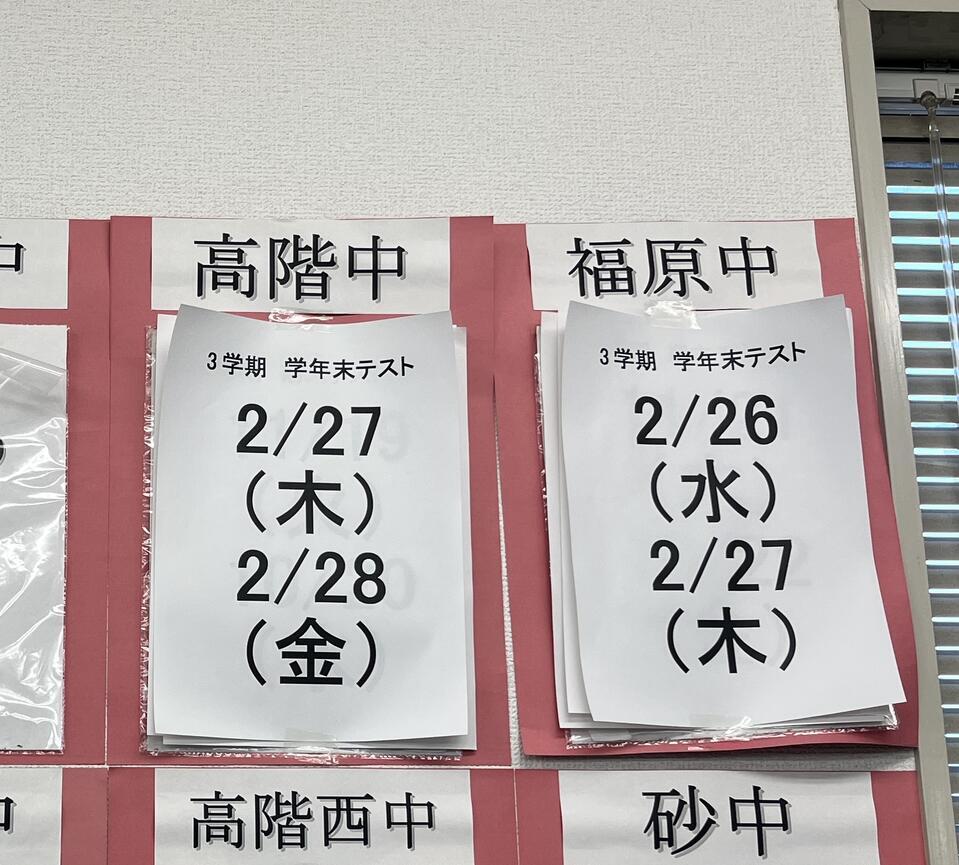 中
高階中
3学期 学年末テスト
2/27
(木)
2/28
(金)
福原中
3学期 学年末テスト
2/26
(水)
2/27
(木)
中
高階西中
砂中